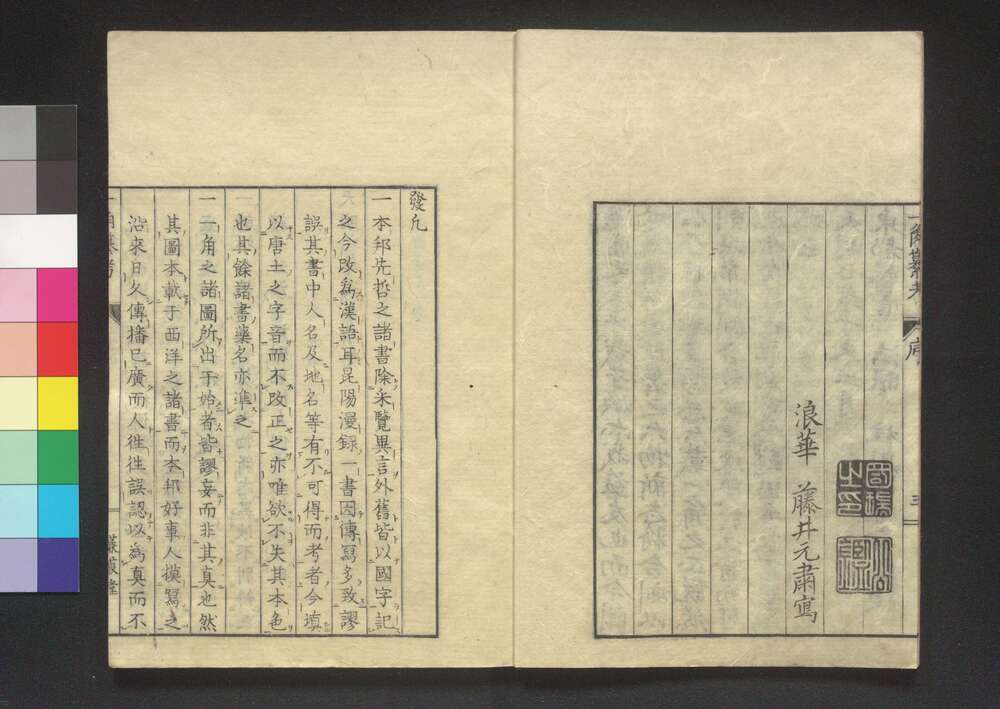 一角纂考
序
三
浪華 藤井元肅寫
發凡
一本邦先哲之諸書除采覽異言外舊皆以國字記
之今改為漢語耳昆陽漫録一書因傳寫多致謬
誤其書中人名及地名等有不可得而考者今填
以唐土之字音而不改正之亦唯欲不失其本色
也其餘諸書藥名亦準之
一一角之諸圖所出于始者皆謬妄而非其真也然
其圖本載于西洋之諸書而本邦好事人摸寫之
沿來日久傳播已廣而人徃徃誤認以為真而不
一角纂考
蒹葭堂